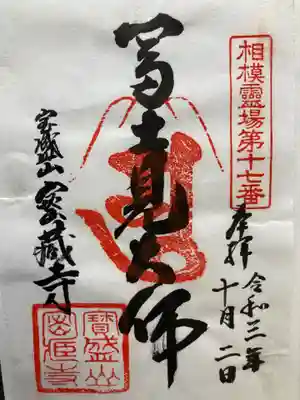 相模靈場第十七番
奉拝 令和三年
十月二日
富士見大師
宝盛山 密蔵寺
寶盛山
密蔵寺